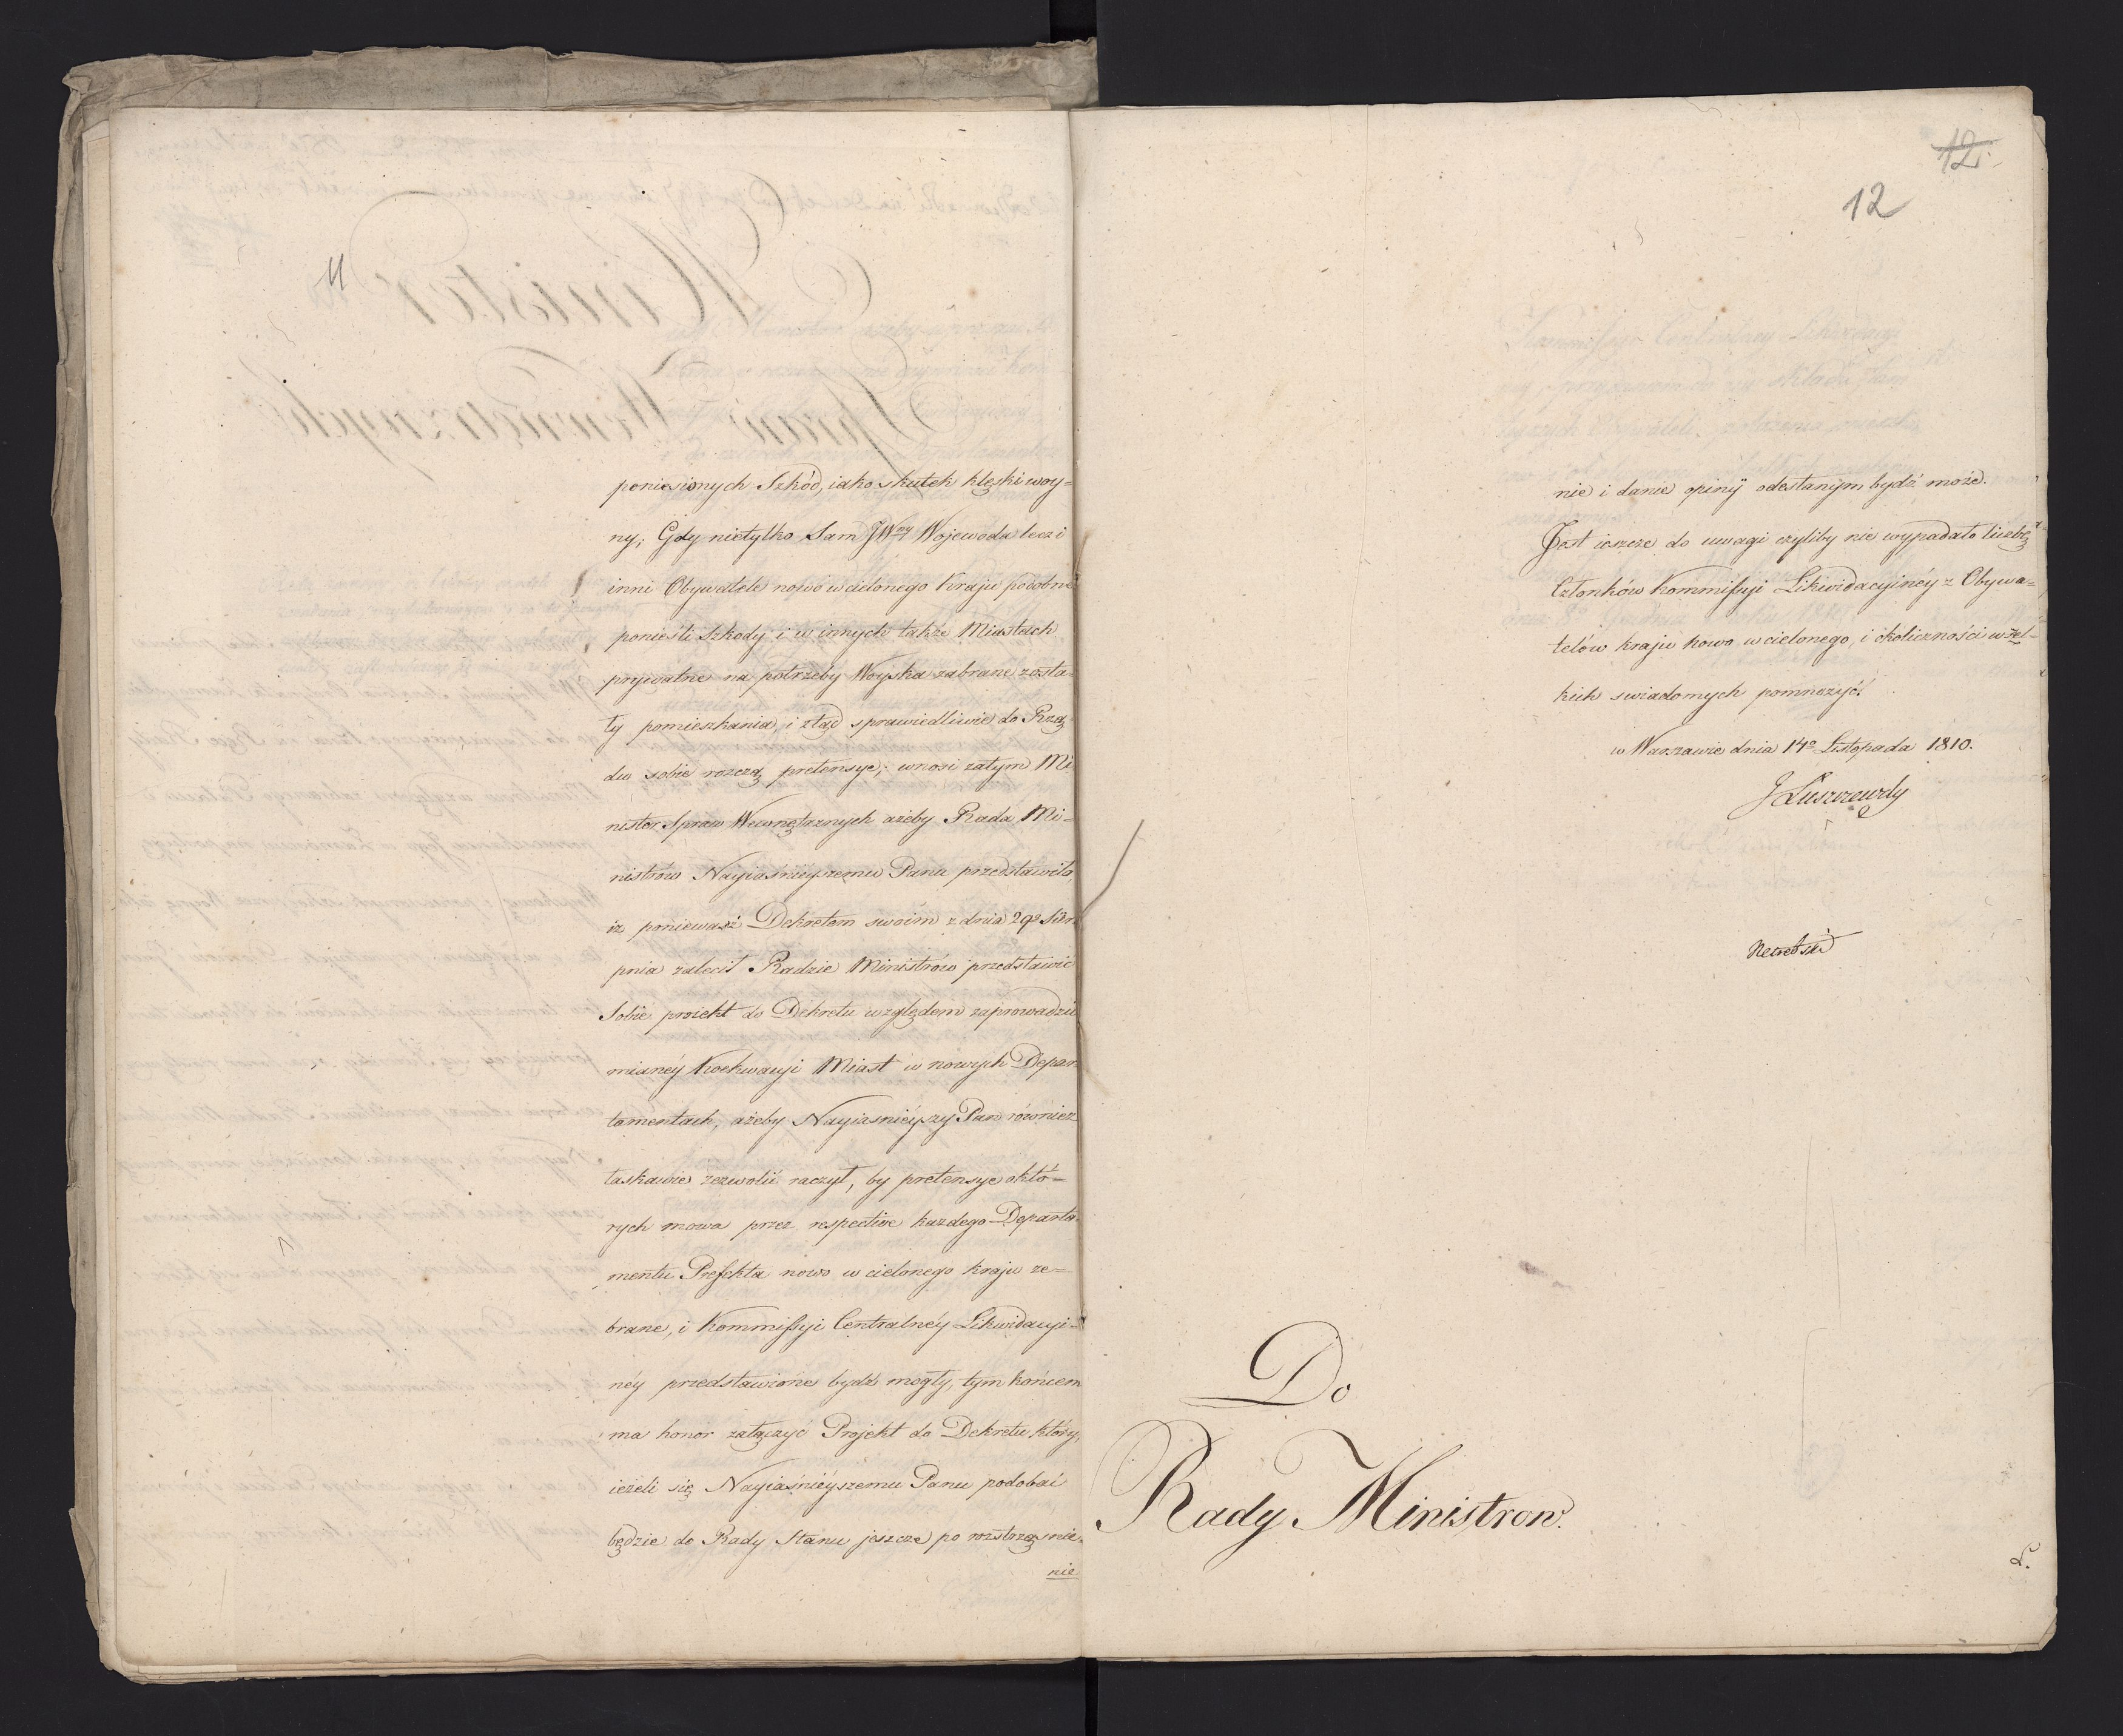 11
poniesionych Szkód, iako skutek klęski woy=
ny; Gdy nietylko Sam JWny Wojewoda lecz i
inni Obywatele nowo wcielonego Kraju podobne
ponieśli Szkody i w innych także Miastach
prywatne na potrzeby Woyska zabrane zosta=
ły pomieszkania, i ztąd sprawiedliwie do Rzą=
du sobie roszczą pretensye; wnosi zatym Mi
nister Spraw Wewnętrznych ażeby Rada Mi=
nistrów Nayiaśnieyszemu Panu przedstawiła,
iż ponieważ Dekretem swoim z dnia 29o Sier
pnia zalecił Radzie Ministrów przedstawić
Sobie proiekt do Dekretu względem zaprowadzić
mianéy Koekwacyi Miast w nowych Depar
tamentach, ażeby Nayiaśnieyszy Pan również
łaskawie zezwolić raczył, by pretensye o któ=
rych mowa przez respective każdego Departa
mentu Prefekta nowo wcielonego kraju ze=
brane, i Kommissyi Centralnéy Likwidacyi=
néy przedstawione bydź mogły, tym końcem
ma honor załączyć Projekt do Dekretu który,
ieżeli się Nayiaśnieyszemu Panu podobać
będzie do Rady Stanu jeszcze po rozstrząsnie=
nie
12.
12
nie i danie opinij odesłanym bydź może.
Jest ieszcze do uwagi czyliby nie wypadało liczbę
Członków Kommissyi Likwidacyinéy z Obywa=
telów kraju nowo wcielonego, i okoliczności wszel=
kich swiadomych pomnożyć.
w Warszawie dnia 14o Listopada 1810.
J Łuszczewsky
Do
Rady Ministrow.
Ł.